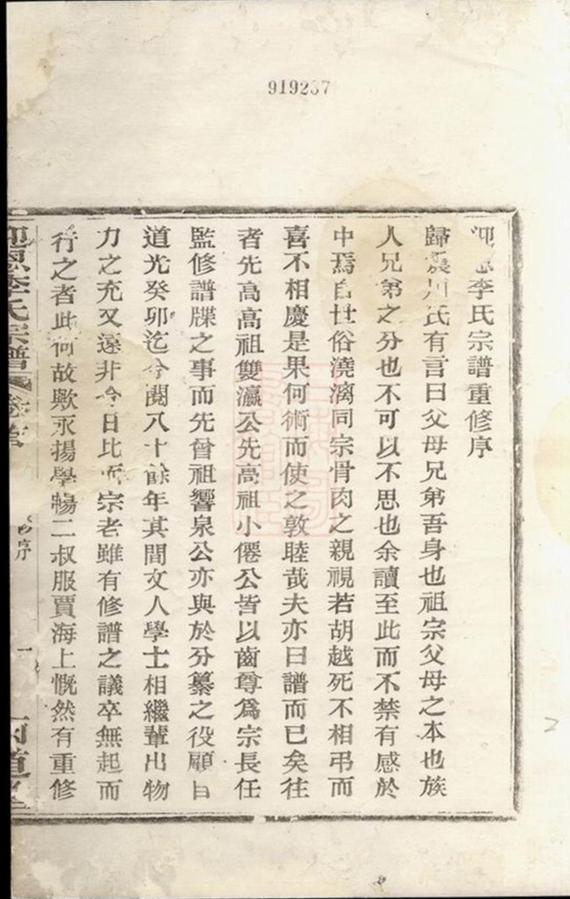 919237
李氏宗譜重修序
歸 川氏有言曰父母兄弟吾身也祖宗父母之本也族
人兄弟之分也不可以不思也余讀至此而不禁有感於
中焉自世俗澆漓同宗骨肉之親視若胡越死不相弔而
喜不相慶是果何術而使之敦睦哉夫亦曰譜而已矣往
者先高高祖雙瀛公先高祖小僊公皆以齒尊為宗長任
監修譜牒之事而先曾祖響泉公亦與於分纂之役顧自
道光癸卯迄今閱八十餘年其間文人學士相繼輩出物
力之充又遠非今日比而宗老雖有修譜之議卒無起而
行之者此何故歟永揚學暢二叔服賈海上慨然有重修
李氏宗譜 卷首 序 一